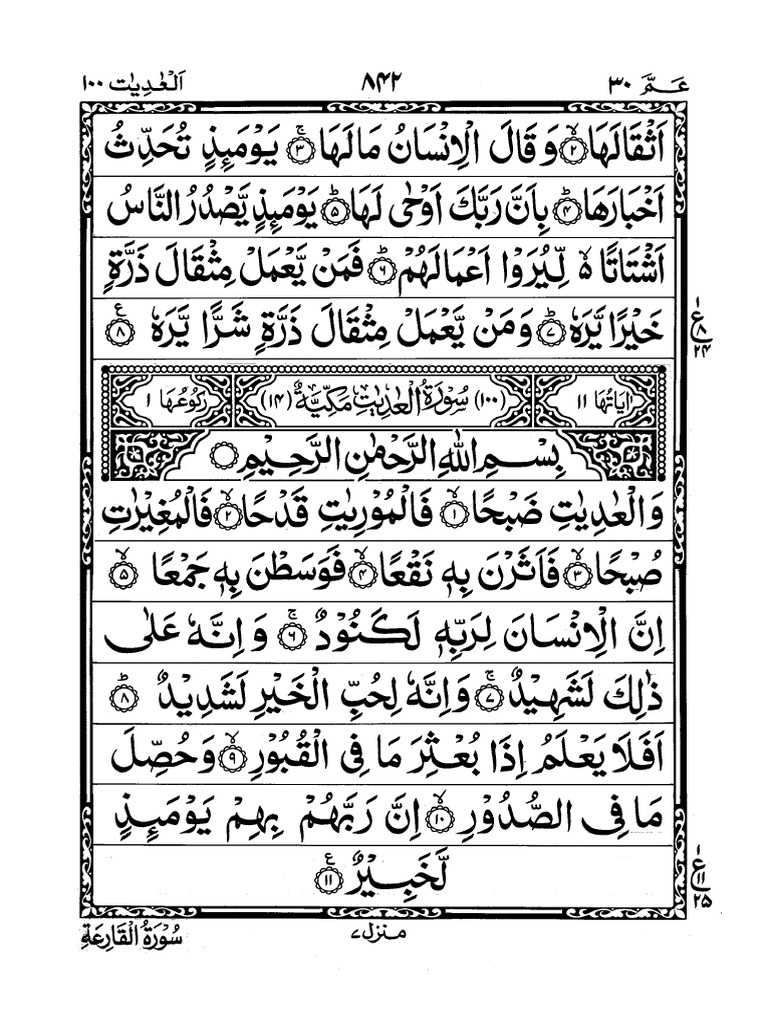 عَـمَّ ٣٠ ٨۴٢ اَلْعٰدِيٰت ١٠٠
اَثْقَالَهَا ۙ﴿٢﴾ وَ قَالَ الْاِنْسَانُ مَا لَهَا ۚ﴿٣﴾ يَوْمَئِذٍ تُحَدِّثُ
اَخْبَارَهَا ؕ﴿۴﴾ بِاَنَّ رَبَّكَ اَوْحٰى لَهَا ؕ﴿۵﴾ يَوْمَئِذٍ يَّصْدُرُ النَّاسُ
اَشْتَاتًا ۵ لِّيُرَوْا اَعْمَالَهُمْ ؕ﴿۶﴾ فَمَنْ يَّعْمَلْ مِثْقَالَ ذَرَّةٍ
خَيْرًا يَّرَهٗ ؕ﴿٧﴾ وَ مَنْ يَّعْمَلْ مِثْقَالَ ذَرَّةٍ شَرًّا يَّرَهٗ ﴿٨﴾ ع
١ ع ٨ ٢۴
اٰيَاتُهَا ١١ (١٠٠) سُوْرَةُ الْعٰدِيٰتِ مَكِّيَّةٌ (١۴) رُكُوْعُهَا ١
بِسْمِ اللّٰهِ الرَّحْمٰنِ الرَّحِيْمِ
وَ الْعٰدِيٰتِ ضَبْحًا ۙ﴿١﴾ فَالْمُوْرِيٰتِ قَدْحًا ۙ﴿٢﴾ فَالْمُغِيْرٰتِ
صُبْحًا ۙ﴿٣﴾ فَاَثَرْنَ بِهٖ نَقْعًا ۙ﴿۴﴾ فَوَسَطْنَ بِهٖ جَمْعًا ۙ﴿۵﴾
اِنَّ الْاِنْسَانَ لِرَبِّهٖ لَكَنُوْدٌ ۚ﴿۶﴾ وَ اِنَّهٗ عَلٰى
ذٰلِكَ لَشَهِيْدٌ ۚ﴿٧﴾ وَ اِنَّهٗ لِحُبِّ الْخَيْرِ لَشَدِيْدٌ ؕ﴿٨﴾
اَفَلَا يَعْلَمُ اِذَا بُعْثِرَ مَا فِى الْقُبُوْرِ ۙ﴿٩﴾ وَ حُصِّلَ
مَا فِى الصُّدُوْرِ ۙ﴿١٠﴾ اِنَّ رَبَّهُمْ بِهِمْ يَوْمَئِذٍ
لَّخَبِيْرٌ ﴿١١﴾ ع
١ ع ١١ ٢۵
منزل ٧ سُوْرَةُ الْقَارِعَةِ